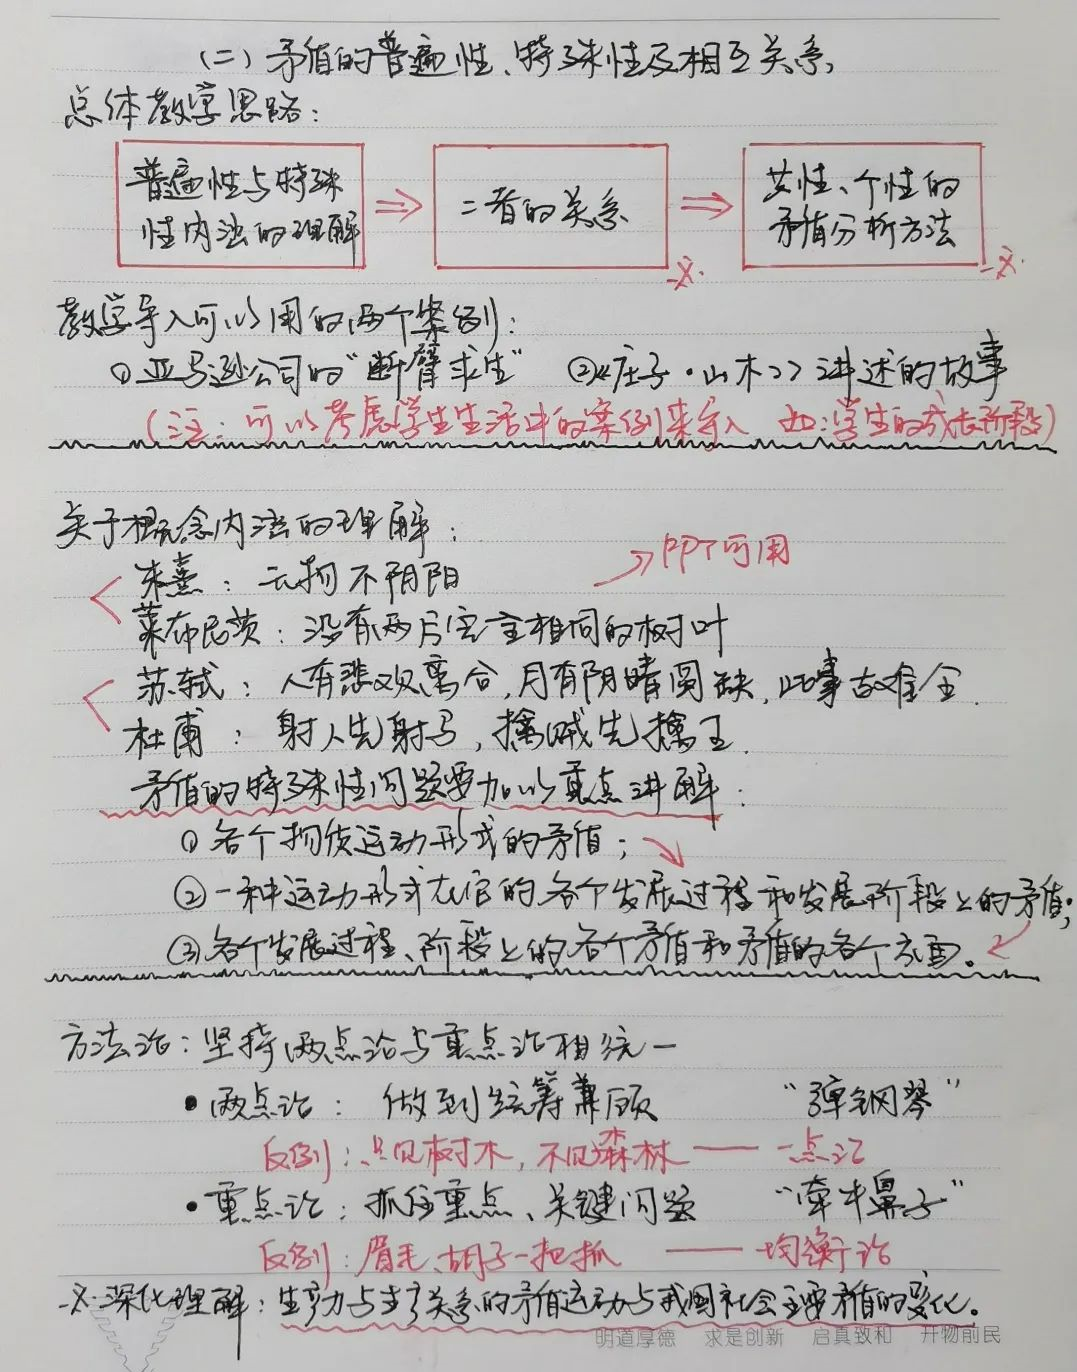 (二)矛盾的普遍性、特殊性及相互关系
总体教学思路:
普遍性与特殊
性内涵的理解
二者的关系
共性、个性的
矛盾分析方法
教学导入可以用的两个案例:
①亚马逊公司的“断臂求生” ②《庄子·山木》讲述的故事
(注:可以考虑学生生活中的案例来导入 如:学生的成长阶段)
关于概念内涵的理解:
→PPT可用
朱熹:无物不阴阳
莱布尼茨:没有两片完全相同的树叶
苏轼:人有悲欢离合,月有阴晴圆缺,此事古难全.
杜甫:射人先射马,擒贼先擒王.
矛盾的特殊性问题要加以重点讲解:
①各个物质运动形式的矛盾;
②一种运动形式在它的各个发展过程和发展阶段上的矛盾;
③各个发展过程、阶段上的各个矛盾和矛盾的各个方面。
方法论:坚持两点论与重点论相统一
•两点论:做到统筹兼顾 “弹钢琴”
反例:只见树木,不见森林——一点论
•重点论:抓住重点、关键问题 “牵牛鼻子”
反例:眉毛、胡子一把抓——均衡论
※深化理解:生产力与生产关系的矛盾运动与我国社会主要矛盾的变化。
明道厚德 求是创新 启真致和 开物前民